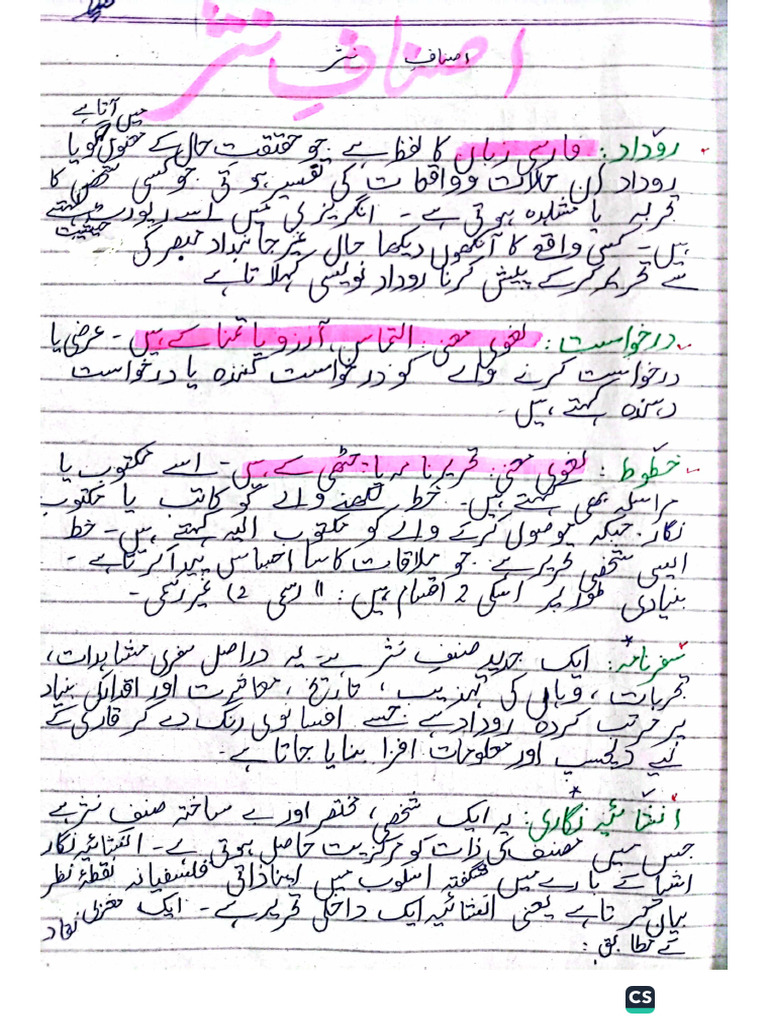 اصنافِ نثر
اصنافِ نثر
میں آتا ہے
روداد: فارسی زبان کا لفظ ہے جو حقیقتِ حال کے معنوں گویا
روداد ان حالات و واقعات کی تفسیر ہوتی جو کسی شخص کا
تجربہ یا مشاہدہ ہوتی ہے۔ انگریزی میں اسے رپورٹ کہتے
حیثیت
ہیں۔ کسی واقع کا آنکھوں دیکھا حال غیر جانبدار مبصر کی
سے تحریر کرکے پیش کرنا روداد نویسی کہلاتا ہے
درخواست: لغوی معنی التماس، آرزو یا تمنا کے ہیں۔ عرضی یا
درخواست کرنے والے کو درخواست کنندہ یا درخواست
دہندہ کہتے ہیں۔
خطوط: لغوی معنی: تحریر نامہ یا چٹھی کے ہیں۔ اسے مکتوب یا
مراسلہ بھی کہتے ہیں۔ خط لکھنے والے کو کاتب یا مکتوب
نگار جبکہ موصول کرنے والے کو مکتوب الیہ کہتے ہیں۔ خط
ایسی شخصی تحریر ہے جو ملاقات کا سا احساس پیدا کرتا ہے۔
بنیادی طور پر اسکی 2 اقسام ہیں: 1) رسمی 2) غیر رسمی۔
سفرنامہ: ایک جدید صنفِ نثر ہے۔ یہ دراصل سفری مشاہدات،
تجربات، وہاں کی تہذیب، تاریخ، معاشرت اور اقدار کی بنیاد
پر مرتب کردہ روداد ہے جسے افسانوی رنگ دے کر قاری کے
لیے دلچسپ اور معلومات افزا بنایا جاتا ہے۔
انشائیہ نگاری: یہ ایک شخصی، مختصر اور بے ساختہ صنف نثر ہے
جس میں مصنف کی ذات کو مرکزیت حاصل ہوتی ہے۔ انشائیہ نگار
اشیا کے بارے میں شگفتہ اسلوب میں اپنا ذاتی فلسفیانہ نقطۂ نظر
بیان کرتا ہے یعنی انشائیہ ایک داخلی تحریر ہے۔ ایک مغربی نقاد
کے مطابق:
CS